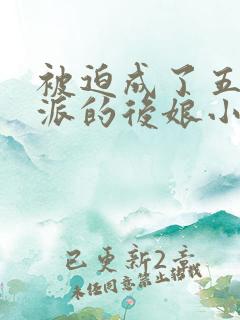 被迫成了五
派的後娘小
已更新2章
未经同意禁止转载